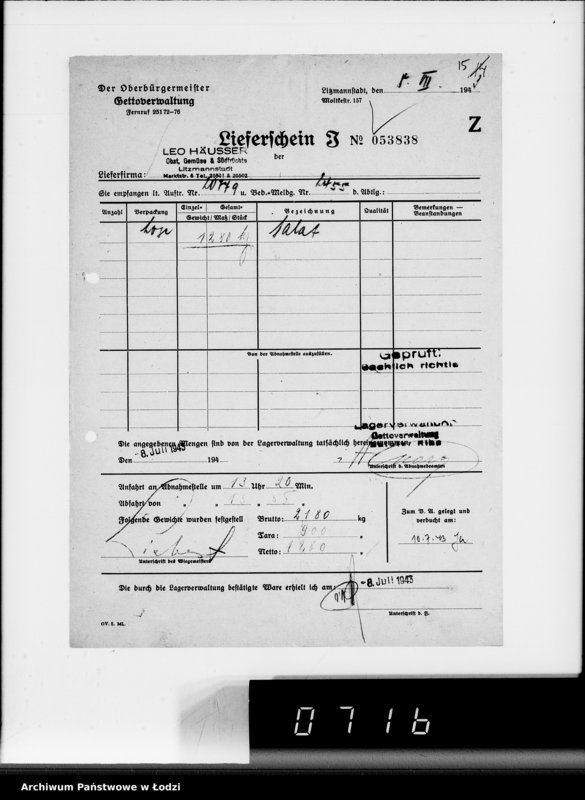 15
Der Oberbürgermeister
Gettoverwaltung
Fernruf 25172-76
Litzmannstadt, den 8. VII. 194
Moltkestr. 157
Z
Lieferschein J № 053838
der
LEO HÄUSSER
Obst, Gemüse & Südfrüchte
Litzmannstadt
Lieferfirma:
Sie empfangen lt. Auftr. Nr. u. Bed.-Meldg. Nr. 2455 d. Abtlg.:
Anzahl Verpackung Einzel- Gesamt- Bezeichnung Qualität Bemerkungen — Beanstandungen
Gewicht / Maß / Stück
lose 1280 kg Salat
Von der Abnahmestelle auszufüllen.
Geprüft:
Sachlich richtig
Lagerverwaltung
Gettoverwaltung
Die angegebenen Mengen sind von der Lagerverwaltung tatsächlich
Den -8. Juli 1943 194
Unterschrift d. Abnahmebeamten
Anfahrt an Abnahmestelle um 13 Uhr 20 Min.
Abfahrt von " " 13 " 55 "
Folgende Gewichte wurden festgestellt Brutto: 2180 kg
Tara: 900 "
Netto: 1280 "
Unterschrift des Wiegemeisters
Zum B. A. gelegt und
verbucht am:
10.7.43
Die durch die Lagerverwaltung bestätigte Ware erhielt ich am: -8. Juli 1943
Unterschrift d. F.
GV. I. ML.
0716
Archiwum Państwowe w Łodzi